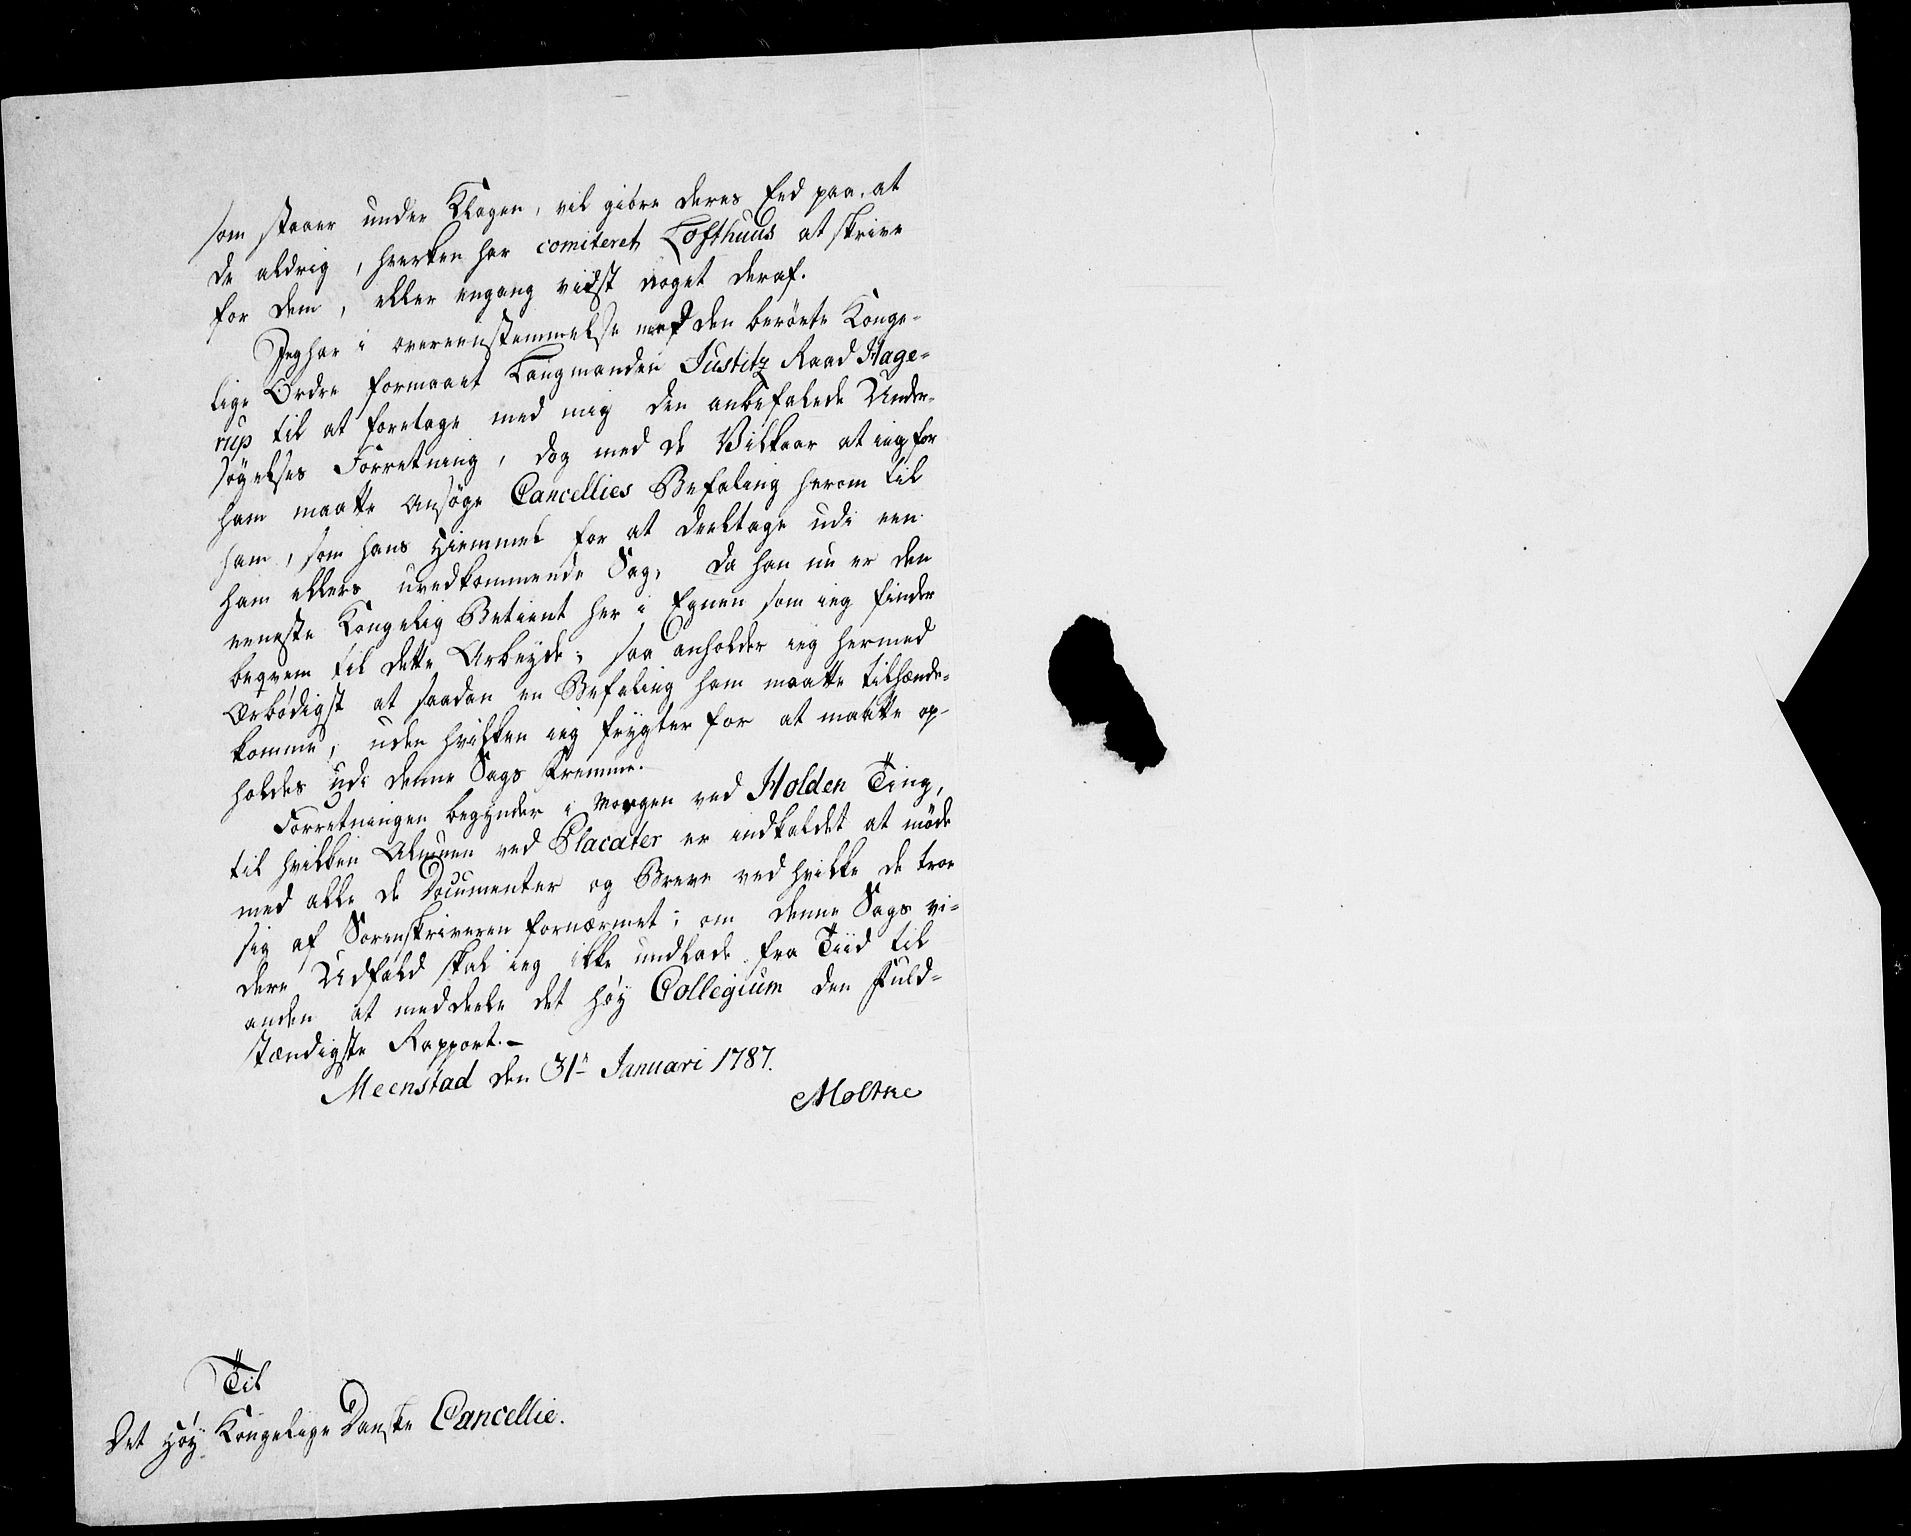 som staaer under Klagen, vil giöre deres Eed paa, at
de aldrig, hverken har comiteret Lofthuus at skrive
for dem, eller engang vidst noget deraf.
Jeg har i overeenstemmelse med den berörte Konge-
lige Ordre formaaet Laugmanden Justitz Raad Hage-
rup til at foretage med mig den anbefalede Under-
søgelses Forretning, dog med de Vilkaar at ieg for
ham maatte Ansøge Cancellies Befaling herom til
ham, som hans Hiemmel for at deeltage udi een
ham ellers uvedkommende Sag, da han nu er den
eeneste Kongelig Betient her i Egnen som ieg finder
beqvem til dette Arbeyde; saa anholder ieg hermed
Ærbödigst at saadan en Befaling ham maatte tilhænde-
komme, uden hvilken ieg frygter for at maatte op-
holdes udi denne Sags Fremme.
Forretningen begynder i Morgen ved Holden Ting,
til hvilken Almuen ved Placater er indkaldet at möde
med alle de Documenter og Breve ved hvilke de troe
sig af Sorenskriveren fornærmet; om denne Sags vi-
dere Udfald skal ieg ikke undlade fra Tiid til
anden at meddeele det høy Collegium den Fuld-
stændigste Rapport.-
Meenstad den 31- Januari 1787.
Moltke
Til
Det Høy Kongelige Danske Cancellie.